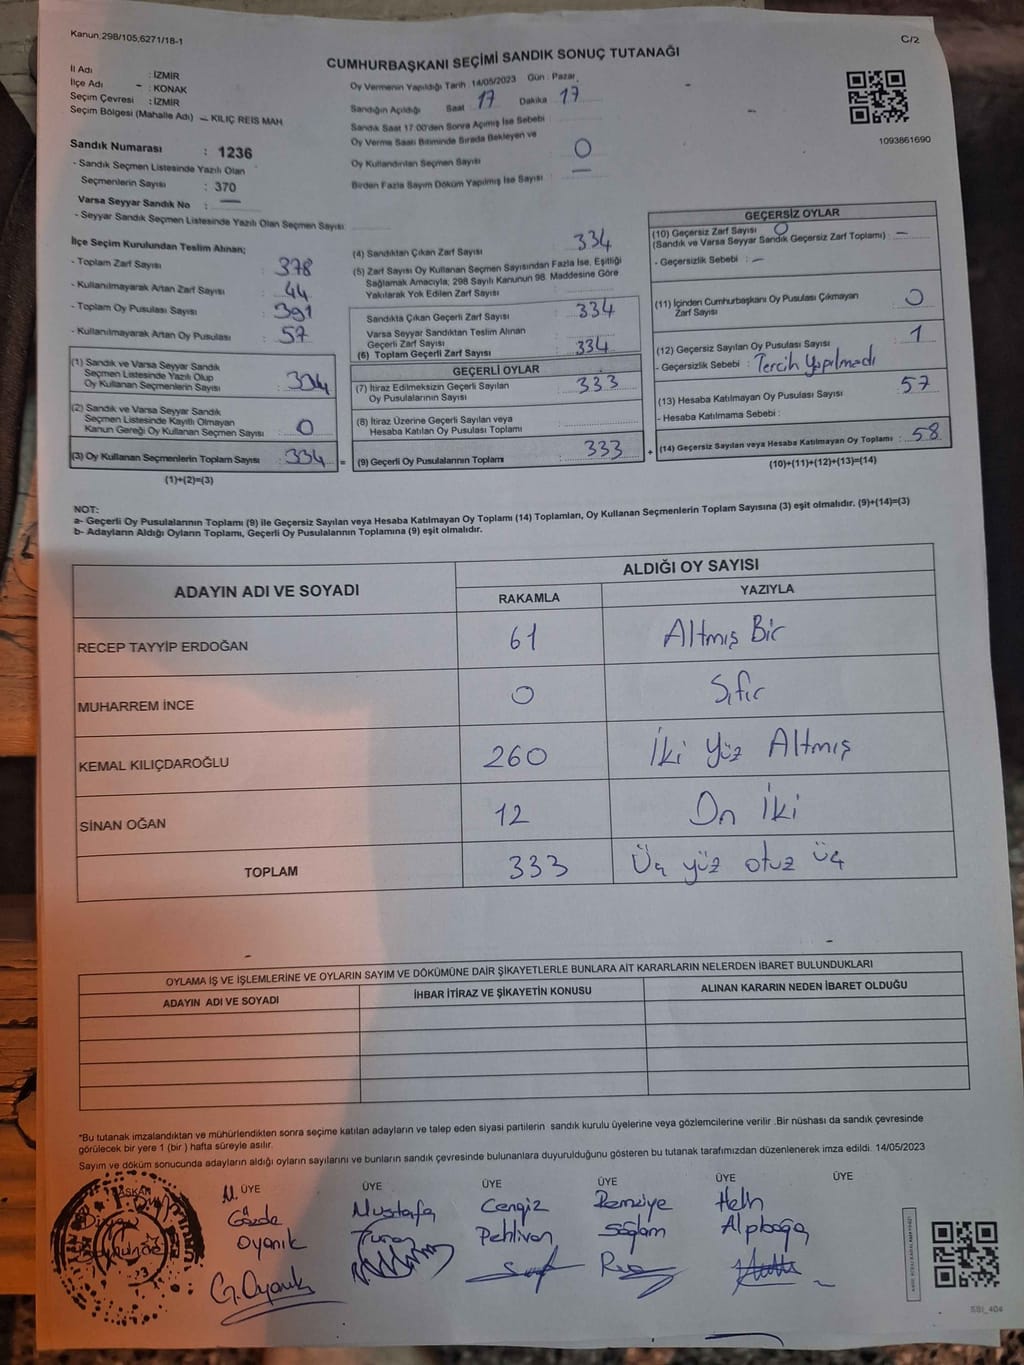 Kanun,298/105,6271/18-1
C/2
CUMHURBAŞKANI SEÇİMİ SANDIK SONUÇ TUTANAĞI
İl Adı : İZMİR
İlçe Adı - : KONAK
Seçim Çevresi : İZMİR
Seçim Bölgesi (Mahalle Adı) - KILIÇ REIS MAH
Oy Vermenin Yapıldığı Tarih 14/05/2023 Gün : Pazar
Sandığın Açıldığı Saat 17 Dakika 17
Sandık Saat 17:00'den Sonra Açımış İse Sebebi :
Oy Verme Saati Bitiminde Sırada Bekleyen ve
Oy Kullandırılan Seçmen Sayısı 0
Birden Fazla Sayım Döküm Yapılmış İse Sayısı : —
1093861690
Sandık Numarası : 1236
- Sandık Seçmen Listesinde Yazılı Olan
Seçmenlerin Sayısı : 370
Varsa Seyyar Sandık No : —
- Seyyar Sandık Seçmen Listesinde Yazılı Olan Seçmen Sayısı:
İlçe Seçim Kurulundan Teslim Alınan;
- Toplam Zarf Sayısı : 378
- Kullanılmayarak Artan Zarf Sayısı : 44
- Toplam Oy Pusulası Sayısı : 391
- Kullanılmayarak Artan Oy Pusulası : 57
(1) Sandık ve Varsa Seyyar Sandık
Seçmen Listesinde Yazılı Olup
Oy Kullanan Seçmenlerin Sayısı : 334
(2) Sandık ve Varsa Seyyar Sandık
Seçmen Listesinde Kayıtlı Olmayan
Kanun Gereği Oy Kullanan Seçmen Sayısı : 0
(3) Oy Kullanan Seçmenlerin Toplam Sayısı : 334 =
(1)+(2)=(3)
(4) Sandıktan Çıkan Zarf Sayısı 334
(5) Zarf Sayısı Oy Kullanan Seçmen Sayısından Fazla İse, Eşitliği
Sağlamak Amacıyla; 298 Sayılı Kanunun 98. Maddesine Göre
Yakılarak Yok Edilen Zarf Sayısı :
Sandıkta Çıkan Geçerli Zarf Sayısı : 334
Varsa Seyyar Sandıktan Teslim Alınan
Geçerli Zarf Sayısı :
(6) Toplam Geçerli Zarf Sayısı : 334
GEÇERLİ OYLAR
(7) İtiraz Edilmeksizin Geçerli Sayılan
Oy Pusulalarının Sayısı : 333
(8) İtiraz Üzerine Geçerli Sayılan veya
Hesaba Katılan Oy Pusulası Toplamı :
(9) Geçerli Oy Pusulalarının Toplamı : 333 +
GEÇERSİZ OYLAR
(10) Geçersiz Zarf Sayısı 0
(Sandık ve Varsa Seyyar Sandık Geçersiz Zarf Toplamı) : —
- Geçersizlik Sebebi : —
(11) İçinden Cumhurbaşkanı Oy Pusulası Çıkmayan
Zarf Sayısı : 0
(12) Geçersiz Sayılan Oy Pusulası Sayısı : 1
- Geçersizlik Sebebi : Tercih Yapılmadı
(13) Hesaba Katılmayan Oy Pusulası Sayısı : 57
- Hesaba Katılmama Sebebi :
(14) Geçersiz Sayılan veya Hesaba Katılmayan Oy Toplamı : 58
(10)+(11)+(12)+(13)=(14)
NOT:
a- Geçerli Oy Pusulalarının Toplamı (9) ile Geçersiz Sayılan veya Hesaba Katılmayan Oy Toplamı (14) Toplamları, Oy Kullanan Seçmenlerin Toplam Sayısına (3) eşit olmalıdır. (9)+(14)=(3)
b- Adayların Aldığı Oyların Toplamı, Geçerli Oy Pusulalarının Toplamına (9) eşit olmalıdır.
ADAYIN ADI VE SOYADI
ALDIĞI OY SAYISI
RAKAMLA YAZIYLA
RECEP TAYYİP ERDOĞAN 61 Altmış Bir
MUHARREM İNCE 0 Sıfır
KEMAL KILIÇDAROĞLU 260 İki Yüz Altmış
SİNAN OĞAN 12 On İki
TOPLAM 333 Üç yüz otuz üç
OYLAMA İŞ VE İŞLEMLERİNE VE OYLARIN SAYIM VE DÖKÜMÜNE DAİR ŞİKAYETLERLE BUNLARA AİT KARARLARIN NELERDEN İBARET BULUNDUKLARI
ADAYIN ADI VE SOYADI İHBAR İTİRAZ VE ŞİKAYETİN KONUSU ALINAN KARARIN NEDEN İBARET OLDUĞU
*Bu tutanak imzalandıktan ve mühürlendikten sonra seçime katılan adayların ve talep eden siyasi partilerin sandık kurulu üyelerine veya gözlemcilerine verilir .Bir nüshası da sandık çevresinde
görülecek bir yere 1 (bir ) hafta süreyle asılır.
Sayım ve döküm sonucunda adayların aldığı oyların sayılarını ve bunların sandık çevresinde bulunanlara duyurulduğunu gösteren bu tutanak tarafımızdan düzenlenerek imza edildi. 14/05/2023
BAŞKAN ÜYE ÜYE ÜYE ÜYE ÜYE ÜYE
M. Gözde Mustafa Cengiz Remziye
Oyanık Turan Pehlivan Sağlam Alpboğa
G.Oyanık
SSI_404